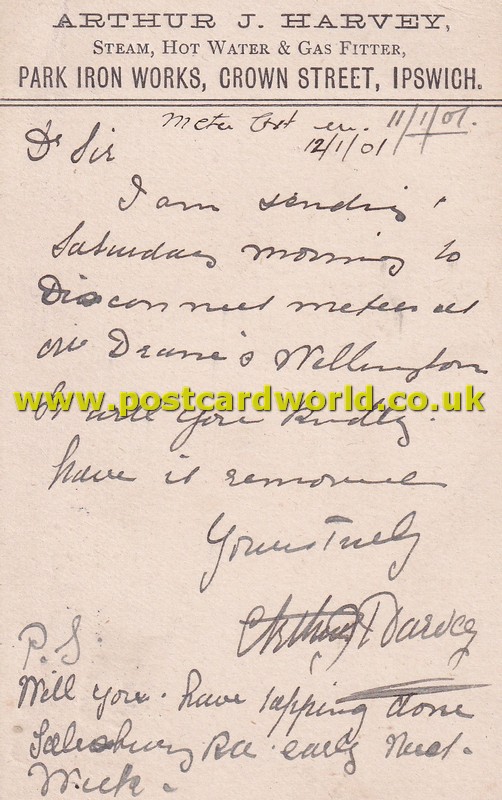 ARTHUR J. HARVEY,
STEAM, HOT WATER & GAS FITTER,
PARK IRON WORKS, CROWN STREET, IPSWICH.
11/1/01.
Meter
12/1/01
Dr Sir
I am sending
Saturday morning to
Disconnect meter at
Deane's Wellington
www.postcardworld.co.uk
St will you kindly
have it removed
Yours Truly
Arthur J Harvey
P.S.
Will you have tapping done
Salesbury Rd early Next
Week.